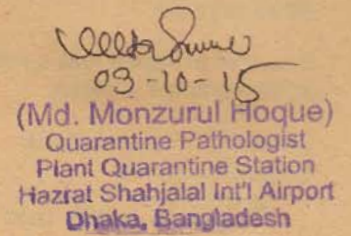 03-10-15
(Md. Monzurul Hoque)
Quarantine Pathologist
Plant Quarantine Station
Hazrat Shahjalal Int'l Airport
Dhaka, Bangladesh